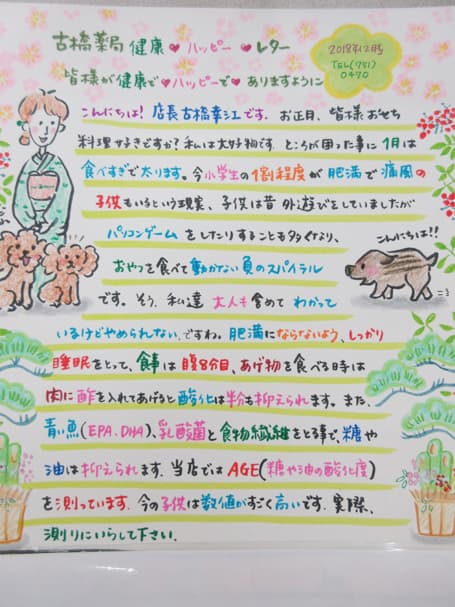 古橋薬局 健康♥ハッピー♥レター
2018年12月号
TEL(751)
0470
皆様が健康で♥ハッピーで♥ありますように
こんにちは! 店長古橋幸江です。お正月、皆様おせち
料理好きですか?私は大好物です。ところが困った事に1月は
食べすぎで太ります。今小学生の1割程度が肥満で痛風の
子供もいるという現実、子供は昔外遊びをしていましたが
パソコンゲームをしたりすることも多くなり、
こんにちは!!
おやつを食べて動かない負のスパイラル
です。そう、私達大人も含めてわかって
いるけどやめられない、ですね。肥満にならないよう、しっかり
睡眠をとって、食事は腹8分目、あげ物を食べる時は
肉に酢を入れてあげると酸化は半分も抑えられます。また、
青い魚(EPA.DHA)、乳酸菌と食物繊維をとる事で、糖や
油は抑えられます。当店ではAGE(糖や油の酸化度)
を測っています。今の子供は数値がすごく高いです。実際、
測りにいらして下さい。